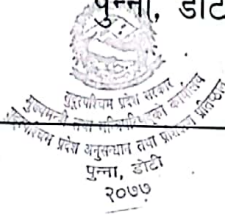 पुन्ना, डोटी
सुदूरपश्चिम प्रदेश सरकार
मुख्यमन्त्री तथा मन्त्रिपरिषद्को कार्यालय
सुदूरपश्चिम प्रदेश अनुसन्धान तथा प्रशिक्षण प्रतिष्ठान
पुन्ना, डोटी
२०७७